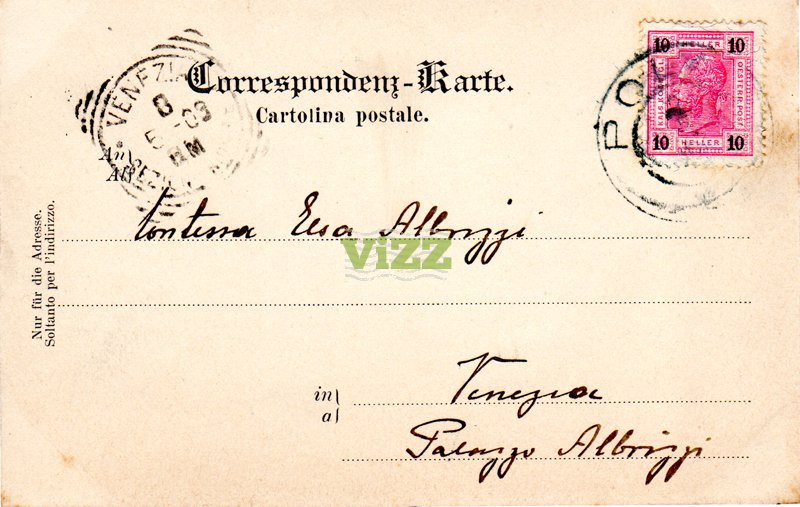 Correspondenz-Karte.
Cartolina postale.
VENEZIA
8
5-03
8M
POLA
10 HELLER 10
KAIS. KÖNIGL.
OESTERR. POST.
10 HELLER 10
An
All
Contessa Elsa Albrizzi
ViZZ
Nur für die Adresse.
Soltanto per l'indirizzo.
in
a
Venezia
Palazzo Albrizzi